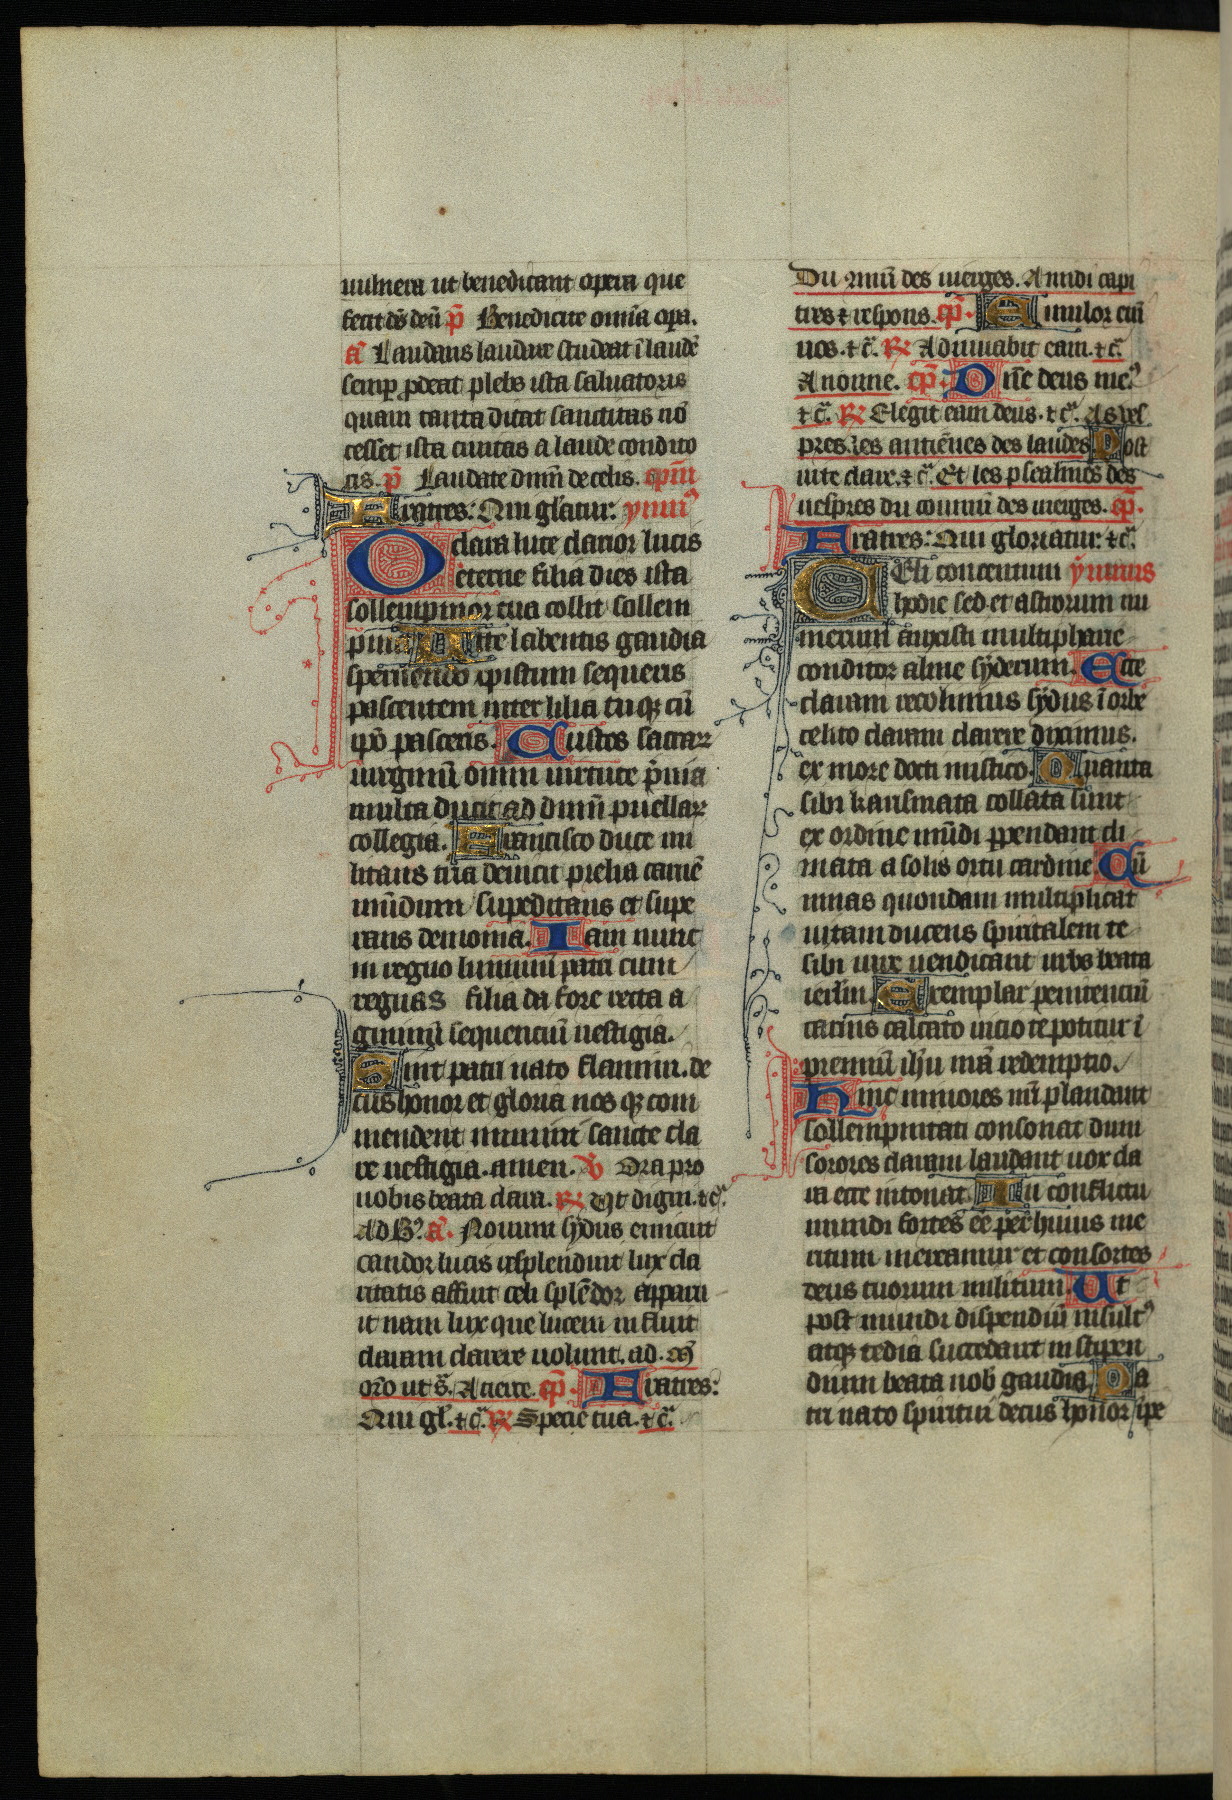 uulnera ut benedicant opera que
fecit dñs deū p̄ Benedicite omnia opa.
a͞ Laudans laudare studeat ī laudē
semp̱ ꝓdeat plebs ista saluatoris
quam tanta ditat sanctitas nō
cesset ista ciuitas a laude condito
ris. p̄ Laudate dnm̄ de celis. cp̄m̄
Fratres: Qui gl̄atur: ymn᷒
O clara luce clarior lucis
eterne filia dies ista
sollempnior tua colit sollem
pnia. Rite labentis gaudia
spernendo xp̄istum sequeris
pascentem inter lilia tuqꝫ cū
ip̄o pasceris. Custos sacraꝝ
uirginū omni uirtute p̄uia
multa ducit ad dnm̄ puellaꝝ
collegia. Francisco duce mi
litans tua deuicit prelia carnē
mūdum supeditans et supe
rans demonia. Iam nunc
in regno luminū patri cum
regnas filia da fore recta a
gminū sequenciū uestigia.
Sint patri nato flamin. de
cus honor et gloria nos qꝫ com
mendent munint sancte cla
re uestigia. amen. ℣ Ora pro
nobis beata clara. ℟ Ut digni. ⁊ c̄.
Ad B᷒. a͞. Nouum sydus emicuit
candor lucis resplenduit lux cla
ritatis affuit celi splēdor apparu
it nam lux que lucem influit
claram clarere uoluit. ad .
oro ut s̄. A tierce. cp̄. Fratres:
Qui gl̄. ⁊ c̄. ℟ Specie tua. ⁊ c̄.
Du ꝯmū des uierges. A midi capi
tres ⁊ respons. cp̄. Emulor eni
uos. ⁊ c̄. ℟ Adiuuabit eam. ⁊ c̄.
A nonne. cp̄. Dn̄e deus me᷒
⁊ c̄. ℟ Elegit eam deus. ⁊ c̄. As ves
pres. les antiēnes des laudes Post
uite clare. ⁊ c̄. Et les psealmes des
uespres du commū des uierges. cp̄.
Fratres: Qui gloriatur. ⁊ c̄.
Celi concentum ymnus
hodie sed et astrorum nu
merum
conditor alme syderum. Ecce
claram recolimus sydus ī orbe
celito claram clarere diximus.
ex more docti mistico. Quanta
sibi karismata collata sunt
ex ordine mūdi ꝑpendant cli
mata a solis ortu cardine. Cū
minas quondam multiplicat
uitam ducens spiritalem te
sibi nunc uendicant urbs beata
ierl̄m. Exemplar penitenciū
carnis calcato uicio te potitur ī
premiū ih̄u nr̄a redemptio.
Hinc minores nr̄i plaudant
sollempnitati consonat dum
sorores claram laudant uox cla
ra ecce intonat. In conflictu
mundi fortes eē per huius me
ritum mereamur et consortes
deus tuorum militum. Ut
post mundi dispendiū insult᷒
atqꝫ tedia succedant in stipen
dium beata nob̄ gaudia. Pa
tri nato spiritui decus honor ipe